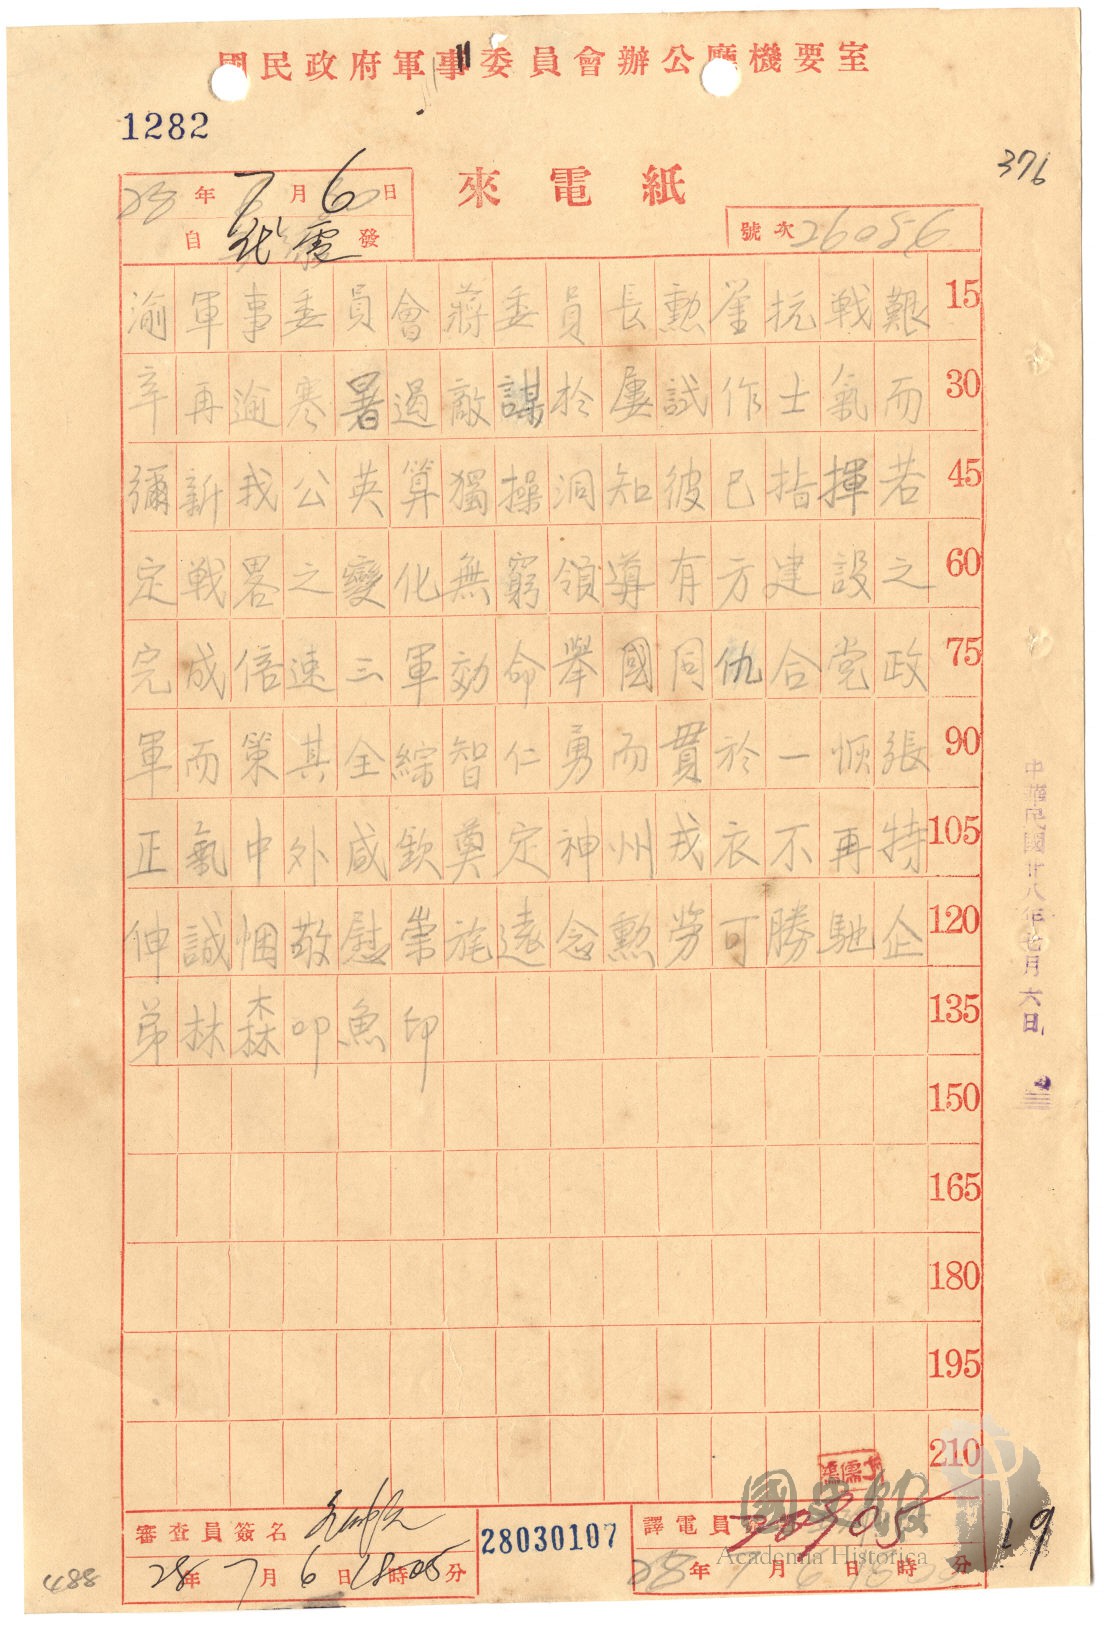 國民政府軍事委員會辦公廳機要室
1282
376
來電紙
28年7月6日
自 發
號次
渝軍事委員會蔣委員長勲鉴抗戰艱 15
辛再逾寒暑遏敵謀於屢試作士氣而 30
彌新我公英算獨操洞知彼己指揮若 45
定戰畧之變化無窮領導有方建設之 60
完成倍速三軍効命舉國同仇合党政 75
軍而策其全綜智仁勇而貫於一恢張 90
正氣中外咸欽奠定神州戎衣不再特 105
伸誠悃敬慰崇旄遠念勲勞可勝馳企 120
弟林森叩魚印 135
150
165
180
195
210
中華民國廿八年七月六日
審查員簽名
28030107
譯電員
28年7月6日18時05分
28年 月6日 時 分
國史館
Academia Historica
19
488